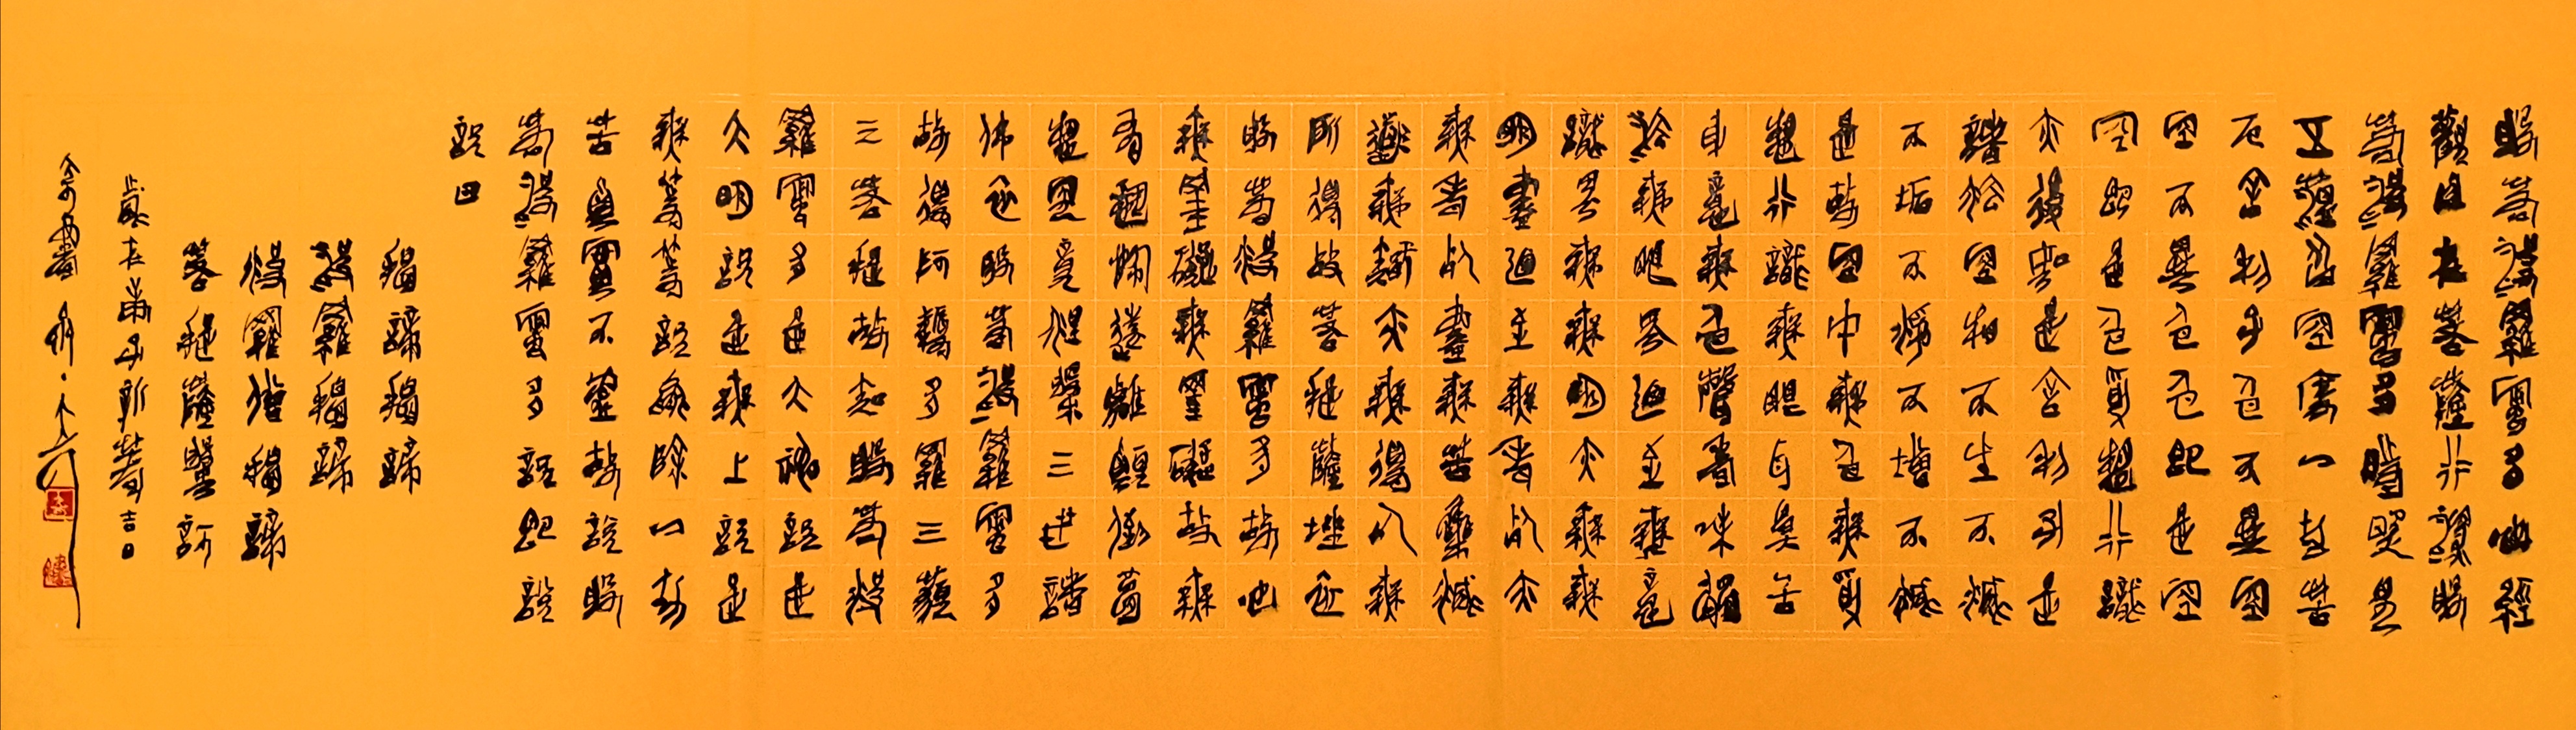 般若波羅蜜多心經
觀自在菩薩行深般
若波羅蜜多時照見
五蘊皆空度一切苦
厄舍利子色不異空
空不異色色即是空
空即是色受想行識
亦復如是舍利子是
諸法空相不生不滅
不垢不淨不增不減
是故空中無色無受
想行識無眼耳鼻舌
身意無色聲香味觸
法無眼界乃至無意
識界無無明亦無無
明盡乃至無老死亦
無老死盡無苦集滅
道無智亦無得以無
所得故菩提薩埵依
般若波羅蜜多故心
無罣礙無罣礙故無
有恐怖遠離顛倒夢
想究竟涅槃三世諸
佛依般若波羅蜜多
故得阿耨多羅三藐
三菩提故知般若波
羅蜜多是大神咒是
大明咒是無上咒是
無等等咒能除一切
苦真實不虛故說般
若波羅蜜多咒即說
咒曰
揭諦揭諦
波羅揭諦
波羅僧揭諦
菩提薩婆訶
歲在甲午新春吉日